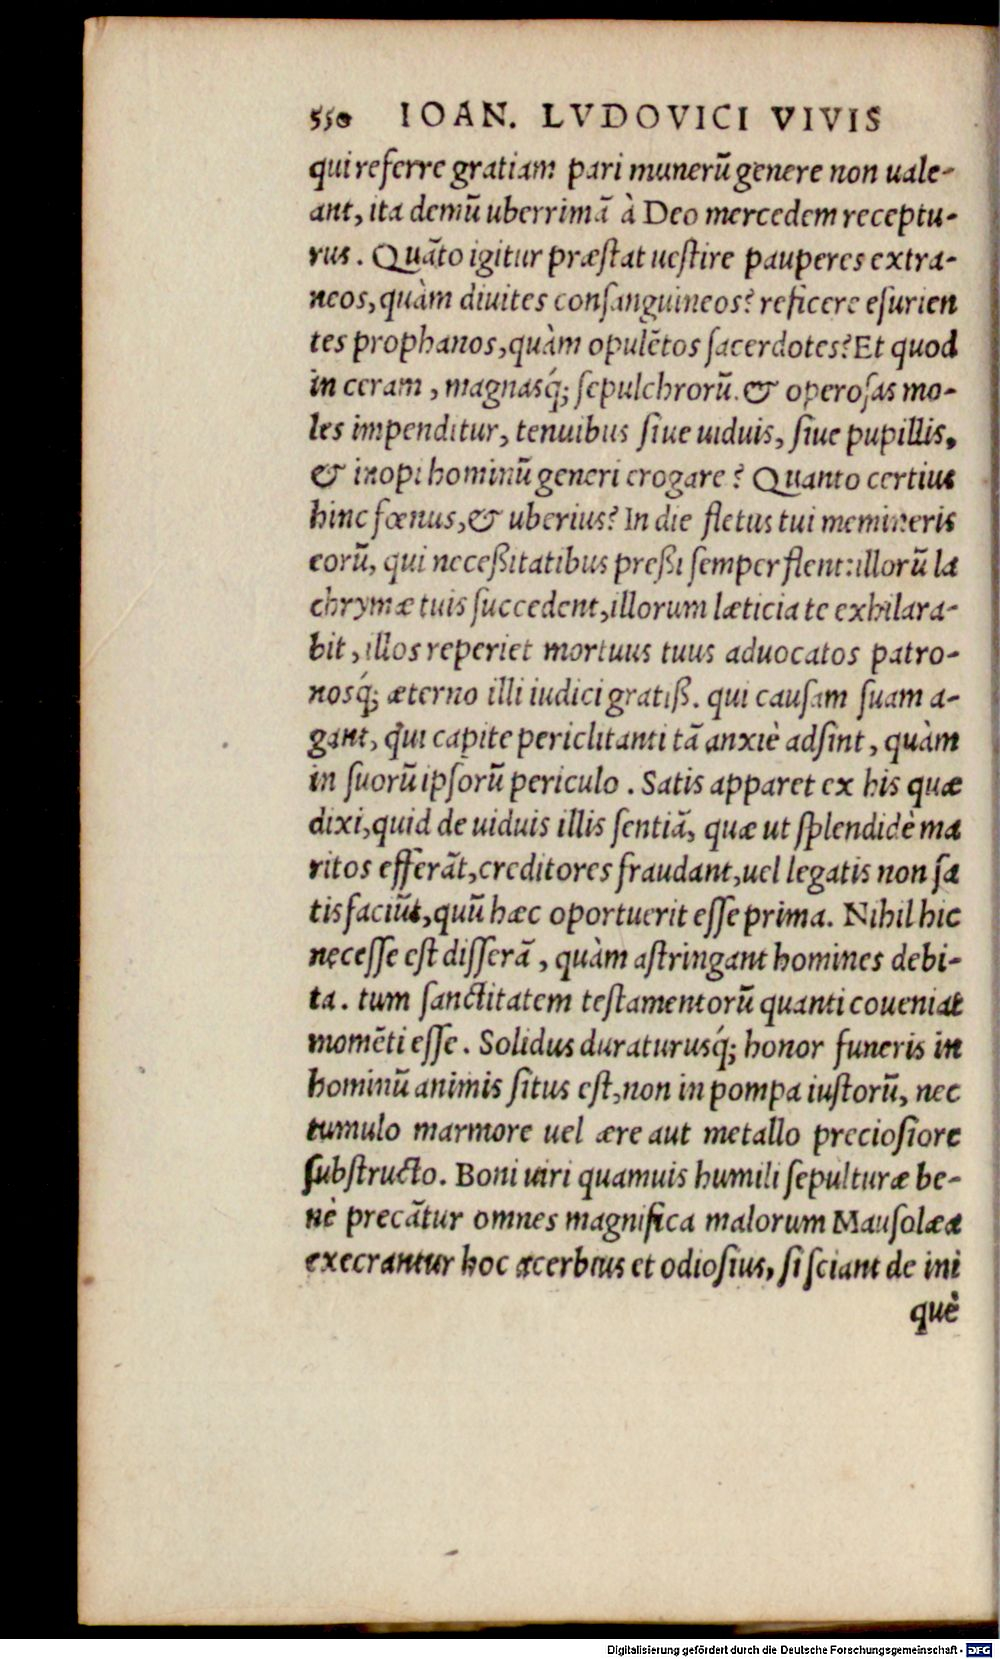 550 IOAN. LVDOVICI VIVIS
qui referre gratiam pari munerū genere non uale-
ant, ita demū uberrimā à Deo mercedem receptu-
rus. Quāto igitur præſtat ueſtire pauperes extra-
neos, quàm diuites conſanguineos? reficere eſurien
tes prophanos, quàm opulētos ſacerdotes? Et quod
in ceram, magnasq́; ſepulchrorū. & operoſas mo-
les impenditur, tenuibus ſiue uiduis, ſiue pupillis,
& inopi hominū generi erogare? Quanto certius
hinc fœnus, & uberius? In die fletus tui memineris
eorū, qui neceßitatibus preßi ſemper flent: illorū la
chrymæ tuis ſuccedent, illorum læticia te exhilara-
bit, illos reperiet mortuus tuus aduocatos patro-
nosq́; æterno illi iudici gratiß. qui cauſam ſuam a-
gant, qui capite periclitanti tā anxiè adſint, quàm
in ſuorū ipſorū periculo. Satis apparet ex his quæ
dixi, quid de uiduis illis ſentiā, quæ ut ſplendidè ma
ritos efferāt, creditores fraudant, uel legatis non ſa
tisfaciūt, quū hæc oportuerit eſſe prima. Nihil hic
neceſſe eſt diſſerā, quàm aſtringant homines debi-
ta. tum ſanctitatem teſtamentorū quanti coueniat
momēti eſſe. Solidus duraturusq́; honor funeris in
hominū animis ſitus eſt, non in pompa iuſtorū, nec
tumulo marmore uel ære aut metallo precioſiore
ſubſtructo. Boni uiri quamuis humili ſepulturæ be-
nè precātur omnes magnifica malorum Mauſolæa
execrantur hoc acerbius et odioſius, ſi ſciant de ini
què
Digitalisierung gefördert durch die Deutsche Forschungsgemeinschaft - DFG